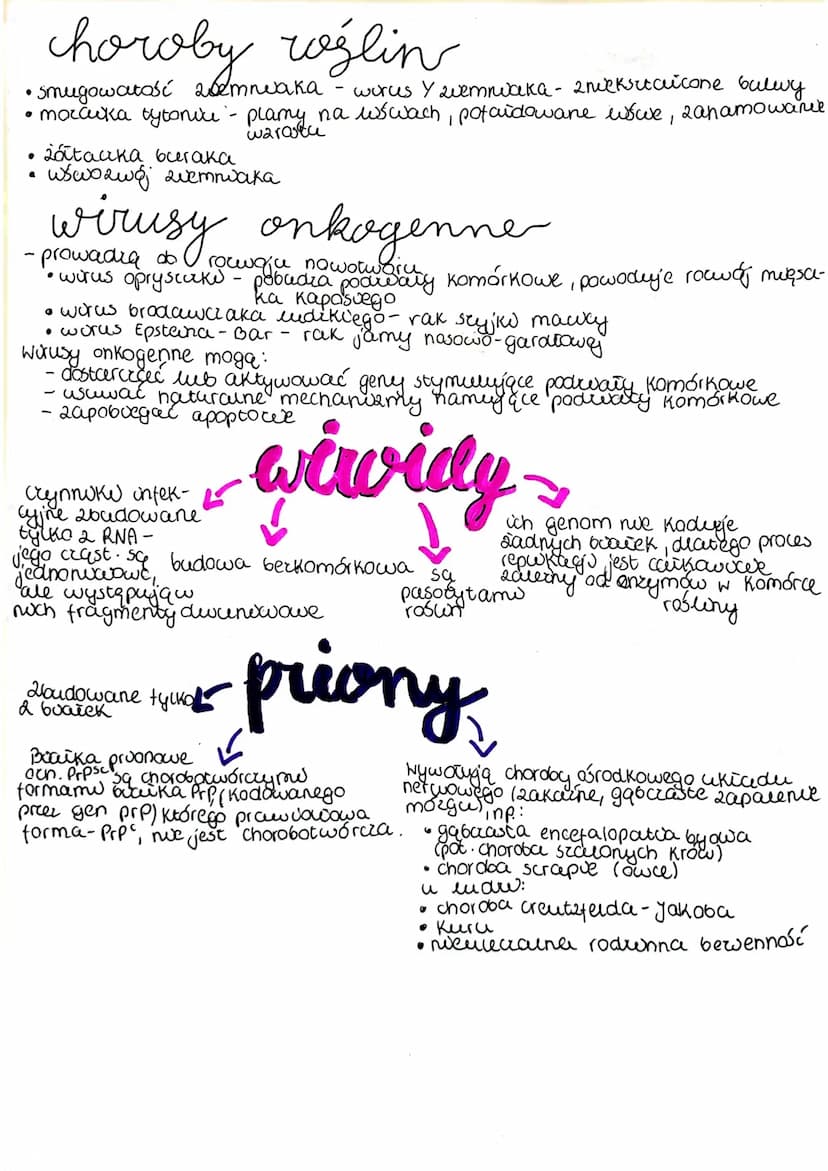 choroby roślin
• smugowatość ziemniaka - wirus Y ziemniaka - zniekształcone bulwy
• mozaika tytoniu - plamy na liściach, pofałdowane liście, zahamowanie
wzrostu
• żółtaczka buraka
• liściozwój ziemniaka
wirusy onkogenne
- prowadzą do rozwoju nowotworu
• wirus opryszczki - pobudza podziały komórkowe, powoduje rozwój mięsa-
ka Kaposiego
• wirus brodawczaka ludzkiego - rak szyjki macicy
• wirus Epsteina - Bar - rak jamy nosowo-gardłowej
Wirusy onkogenne mogą:
- dostarczać lub aktywować geny stymulujące podziały komórkowe
- usuwać naturalne mechanizmy hamujące podziały komórkowe
- zapobiegać apoptozie
wiroidy
czynniki infek-
cyjne zbudowane
tylko z RNA -
jego cząst. są
jednoniciowe,
ale występują w
nich fragmenty dwuniciowe
budowa bezkomórkowa
są
pasożytami
roślin
ich genom nie koduje
żadnych białek, dlatego proces
replikacji jest całkowicie
zależny od enzymów w komórce
rośliny
priony
zbudowane tylko
z białek
Białka prionowe
ozn. PrPˢᶜ są chorobotwórczymi
formami białka PrP (kodowanego
przez gen PrP) którego prawidłowa
forma - PrPᶜ, nie jest chorobotwórcza.
Wywołują choroby ośrodkowego układu
nerwowego (zakaźne, gąbczaste zapalenie
mózgu), np:
• gąbczasta encefalopatia bydła
(pot. choroba szalonych krów)
• choroba scrapie (owce)
u ludzi:
• choroba Creutzfelda - Jakoba
• Kuru
• nieuleczalna rodzinna bezsenność